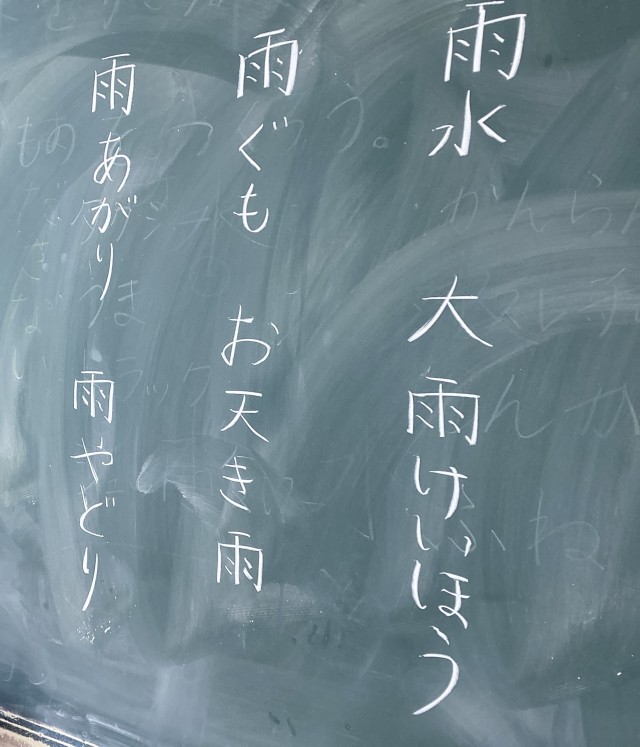 雨水 大雨けいほう
雨ぐも お天き雨
雨あがり 雨やどり